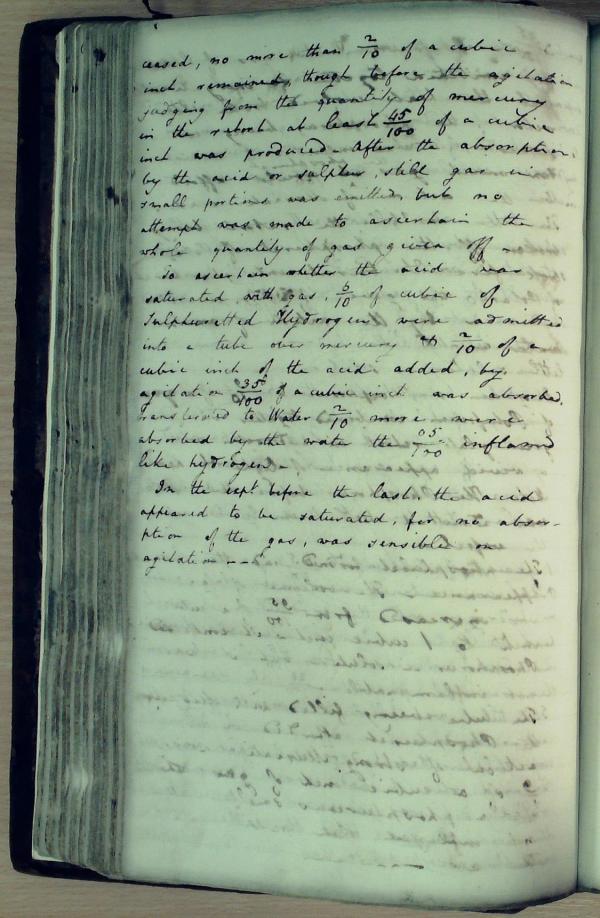 ceased, no more than 2/10 of a cubic
inch remained, though before the agitation
judging from the quantity of mercury
in the retort at least 45/100 of a cubic
inch was produced. After the absorption,
by the acid or sulphur, still gas in
small portions was emitted, but no
attempt was made to ascertain the
whole quantity of gas given off -
To ascertain whether the acid was
saturated with gas, 6/10 of cubic of
Sulphuretted Hydrogen were admitted
into a tube over mercury & 2/10 of a
cubic inch of the acid added, by
agitation 35/100 of a cubic inch was absorbed,
transferred to Water 2/10 more were
absorbed by the water the 05/100 inflamed
like hydrogen -
In the expt before the last, the acid
appeared to be saturated, for no absor-
ption of the gas, was sensible on
agitation - - -